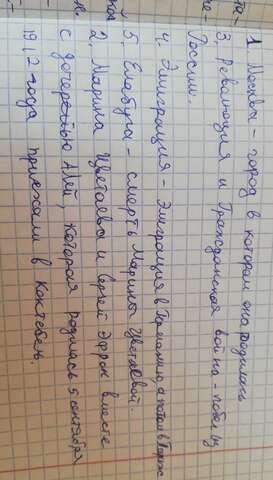 1. Москва – город в котором она родилась
3. Революция и Гражданская война – побег из
России.
4. Эмиграция – Эмиграция в Германию а потом в Париж
5. Елабуга – смерть Марины Цветаевой.
2. Марина Цветаева и Сергей Эфрон вместе
с дочерью Алей, которая родилась 5 сентября
1912 года приехали в Коктебель.